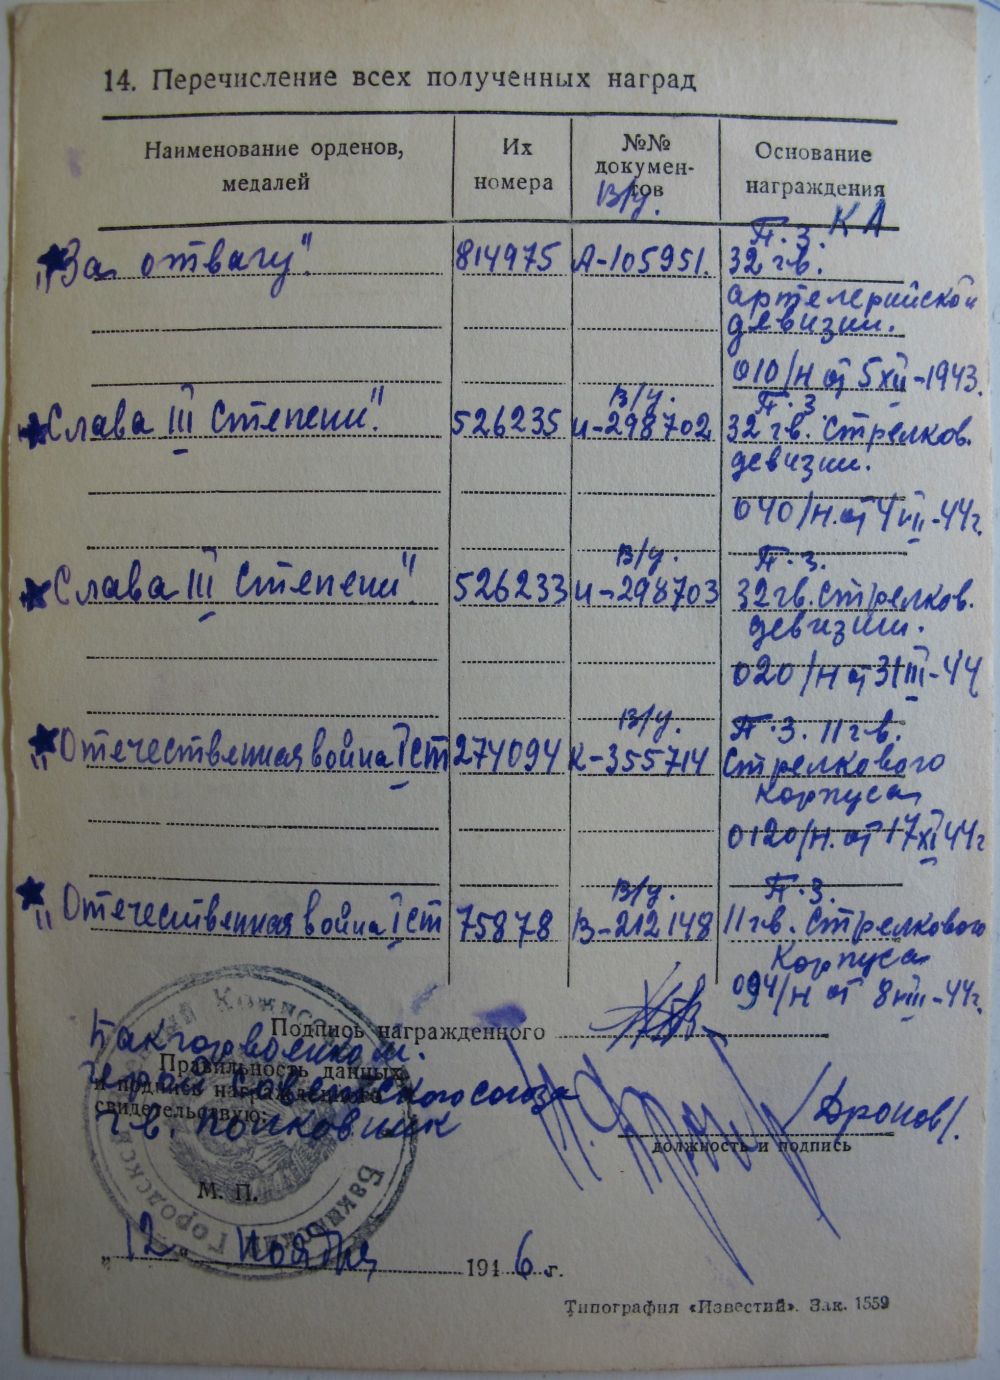 14. Перечисление всех полученных наград
Наименование орденов, медалей
Их номера
№№ докумен-тов
Основание награждения
В/у.
П.З. КА
„За отвагу". 814975 А-105951. 32 гв.
артелерийской
девизии.
010/н от 5 XII-1943.
В/у. П.З.
„Слава III степени". 526235 И-298702 32 гв. стрелков.
девизии.
040/н. от 4 VII-44г.
В/у. П.З.
„Слава III степени". 526233 И-298703 32 гв. стрелков.
девизии.
020/н от 31 III-44
В/у. П.З. 11 гв.
„Отечественная война I ст 274094 К-355714 Стрелкового
корпуса
0120/н. от 17 XI 44г
В/у. П.З.
„Отечественная война I ст 75878 В-212148 11 гв. Стрелкового
корпуса
094/н от 8 VIII-44г.
Подпись награжденного
Бакгорвоенком.
Правильность данных
Герой Советского союза
и подпись награжденного
свидетельствую:
гв. полковник
/Дронов/.
должность и подпись
М. П.
Городской
Бакинский
„12" Ноября 1946 г.
Типография «Известий». Зак. 1559